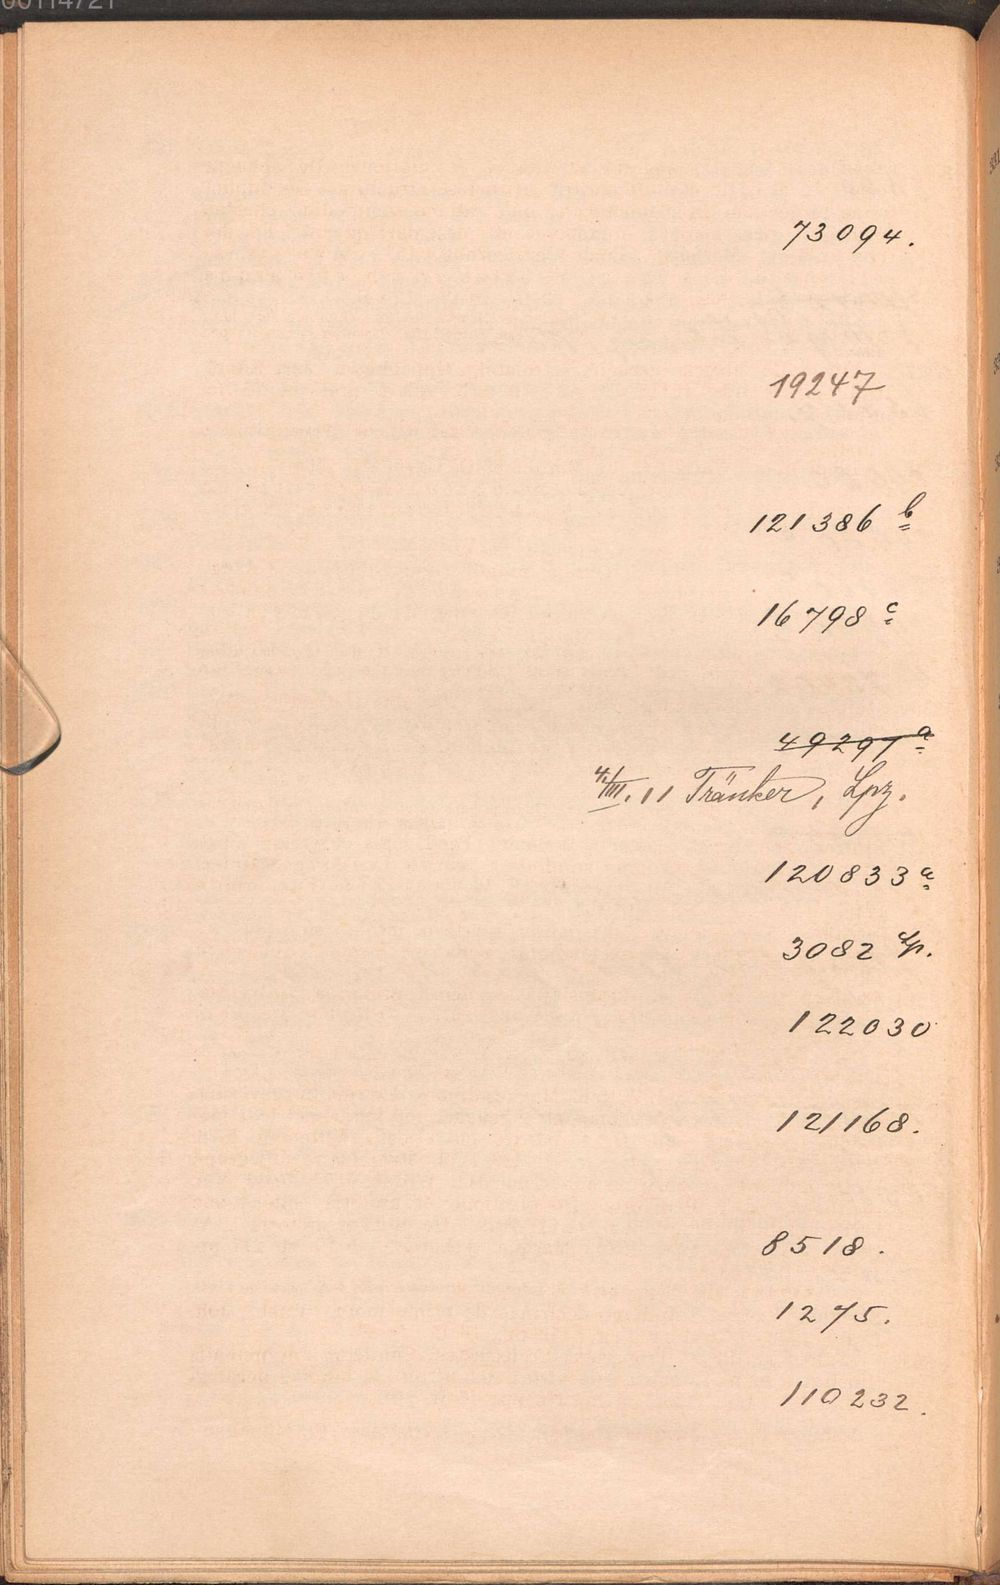 00114721
73094.
19247
121386 b
16798 c
49297 a
4./III. 11 Tränker, Lpz.
120833 a
3082 Lp.
122030
121168.
8518.
1275.
110232.